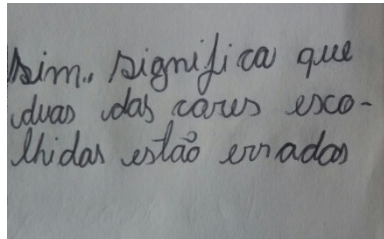 Sim.. significa que
duas das cores esco-
lhidas estão erradas